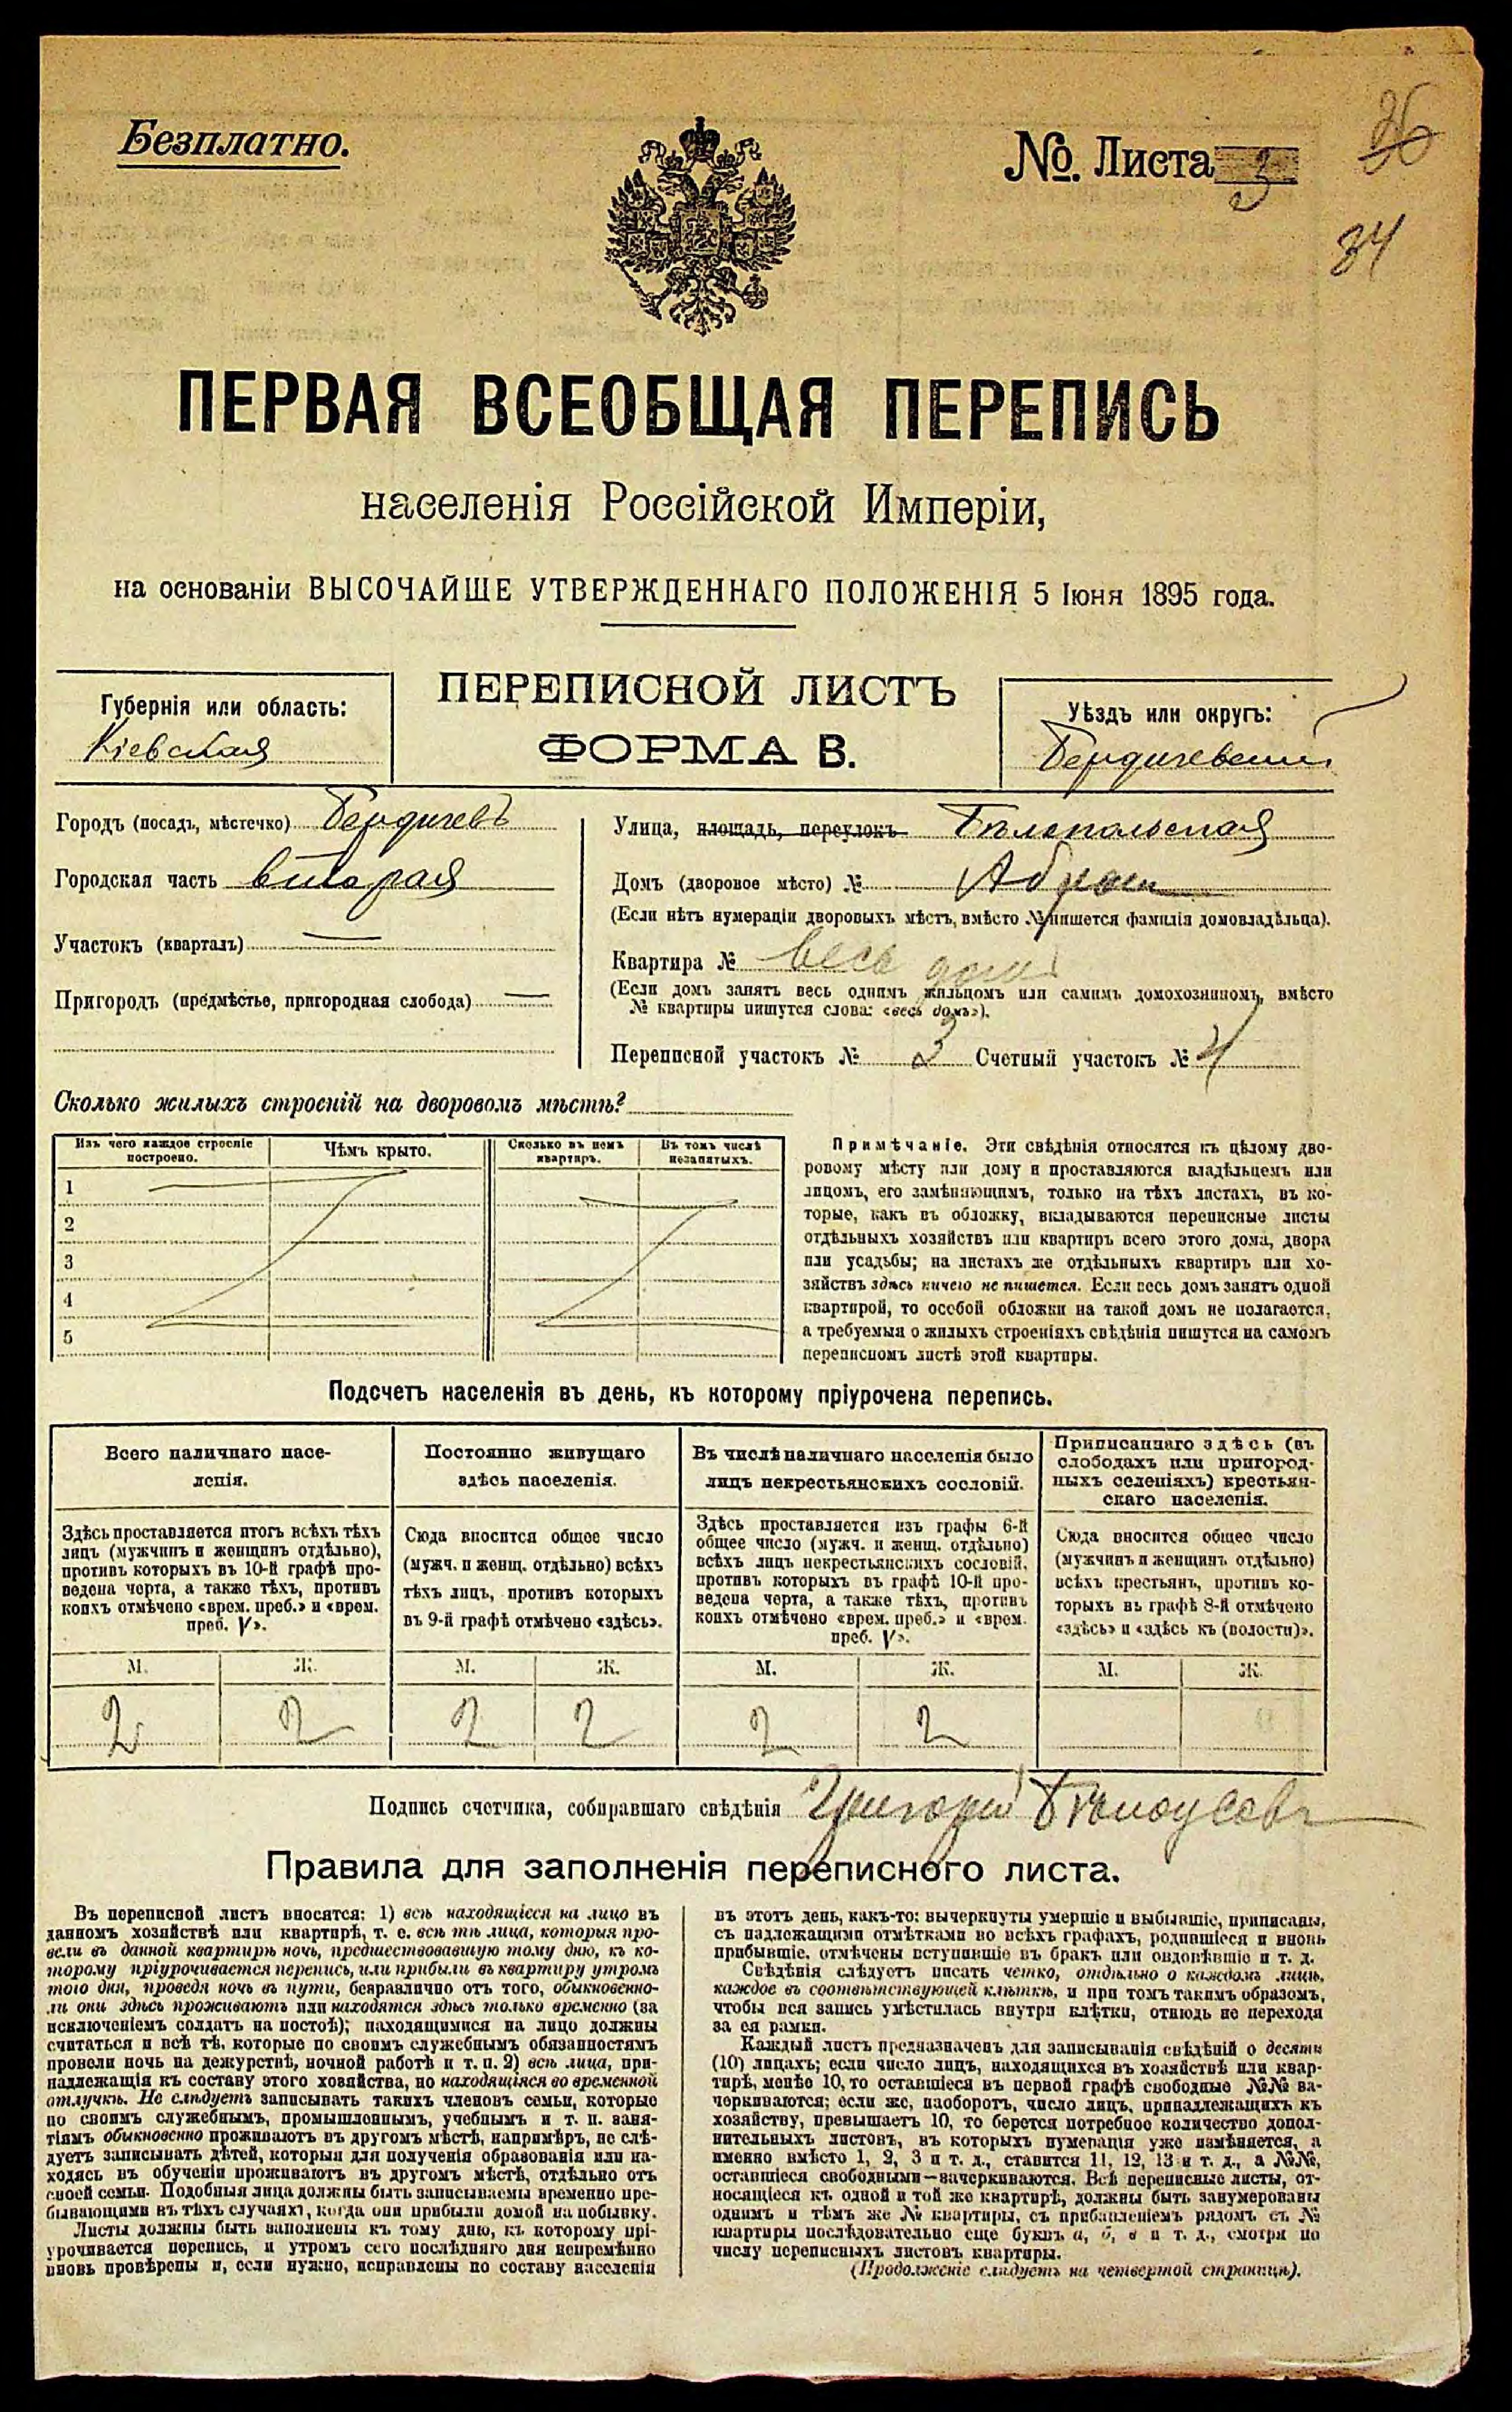 Безплатно.
№. Листа 3
26
34
ПЕРВАЯ ВСЕОБЩАЯ ПЕРЕПИСЬ
населенія Россійской Имперіи,
на основаніи ВЫСОЧАЙШЕ УТВЕРЖДЕННАГО ПОЛОЖЕНІЯ 5 Іюня 1895 года.
Губернія или область:
Кіевская
ПЕРЕПИСНОЙ ЛИСТЪ
ФОРМА В.
Уѣздъ или округъ:
Бердичевскій
Городъ (посадъ, мѣстечко) Бердичевъ
Городская часть вторая
Участокъ (кварталъ) —
Пригородъ (предмѣстье, пригородная слобода) —
Улица, площадь, переулокъ Бѣлопольская
Домъ (дворовое мѣсто) №
(Если нѣтъ нумераціи дворовыхъ мѣстъ, вмѣсто № пишется фамилія домовладѣльца).
Квартира № весь домъ
(Если домъ занятъ весь однимъ жильцомъ или самимъ домохозяиномъ, вмѣсто
№ квартиры пишутся слова: «весь домъ»).
Переписной участокъ № 3 Счетный участокъ № 4
Сколько жилыхъ строеній на дворовомъ мѣстѣ?
Изъ чего каждое строеніе
построено.
Чѣмъ крыто.
Сколько въ немъ
квартиръ.
Въ томъ числѣ
незанятыхъ.
1
2
3
4
5
Примѣчаніе. Эти свѣдѣнія относятся къ цѣлому дво-
ровому мѣсту или дому и проставляются владѣльцемъ или
лицомъ, его замѣняющимъ, только на тѣхъ листахъ, въ ко-
торые, какъ въ обложку, вкладываются переписные листы
отдѣльныхъ хозяйствъ или квартиръ всего этого дома, двора
или усадьбы; на листахъ же отдѣльныхъ квартиръ или хо-
зяйствъ здѣсь ничего не пишется. Если весь домъ занятъ одной
квартирой, то особой обложки на такой домъ не полагается,
а требуемыя о жилыхъ строеніяхъ свѣдѣнія пишутся на самомъ
переписномъ листѣ этой квартиры.
Подсчетъ населенія въ день, къ которому пріурочена перепись.
Всего наличнаго насе-
ленія.
Здѣсь проставляется итогъ всѣхъ тѣхъ
лицъ (мужчинъ и женщинъ отдѣльно),
противъ которыхъ въ 10-й графѣ про-
ведена черта, а также тѣхъ, противъ
коихъ отмѣчено «врем. преб.» и «врем.
преб. V».
Постоянно живущаго
здѣсь населенія.
Сюда вносится общее число
(мужч. и женщ. отдѣльно) всѣхъ
тѣхъ лицъ, противъ которыхъ
въ 9-й графѣ отмѣчено «здѣсь».
Въ числѣ наличнаго населенія было
лицъ некрестьянскихъ сословій.
Здѣсь проставляется изъ графы 6-й
общее число (мужч. и женщ. отдѣльно)
всѣхъ лицъ некрестьянскихъ сословій,
противъ которыхъ въ графѣ 10-й про-
ведена черта, а также тѣхъ, противъ
коихъ отмѣчено «врем. преб.» и «врем.
преб. V».
Приписаннаго здѣсь (въ
слободахъ или пригород-
ныхъ селеніяхъ) крестьян-
скаго населенія.
Сюда вносится общее число
(мужчинъ и женщинъ отдѣльно)
всѣхъ крестьянъ, противъ ко-
торыхъ въ графѣ 8-й отмѣчено
«здѣсь» и «здѣсь къ (волости)».
М. Ж. М. Ж. М. Ж. М. Ж.
2 2 2 2 2 2
Подпись счетчика, собиравшаго свѣдѣнія Григорій Бѣлоусовъ
Правила для заполненія переписного листа.
Въ переписной листъ вносятся: 1) всѣ находящіеся на лицо въ
данномъ хозяйствѣ или квартирѣ, т. е. всѣ тѣ лица, которыя про-
вели въ данной квартирѣ ночь, предшествовавшую тому дню, къ ко-
торому пріурочивается перепись, или прибыли въ квартиру утромъ
того дня, проведя ночь въ пути, безразлично отъ того, обыкновенно-
ли они здѣсь проживаютъ или находятся здѣсь только временно (за
исключеніемъ солдатъ на постоѣ); находящимися на лицо должны
считаться и всѣ тѣ, которые по своимъ служебнымъ обязанностямъ
провели ночь на дежурствѣ, ночной работѣ и т. п. 2) всѣ лица, при-
надлежащія къ составу этого хозяйства, но находящіяся во временной
отлучкѣ. Не слѣдуетъ записывать такихъ членовъ семьи, которые
по своимъ служебнымъ, промышленнымъ, учебнымъ и т. п. заня-
тіямъ обыкновенно проживаютъ въ другомъ мѣстѣ, напримѣръ, не слѣ-
дуетъ записывать дѣтей, которыя для полученія образованія или на-
ходясь въ обученіи проживаютъ въ другомъ мѣстѣ, отдѣльно отъ
своей семьи. Подобныя лица должны быть записываемы временно пре-
бывающими въ тѣхъ случаяхъ, когда они прибыли домой на побывку.
Листы должны быть наполнены къ тому дню, къ которому прі-
урочивается перепись, и утромъ сего послѣдняго дня непремѣнно
вновь провѣрены и, если нужно, исправлены по составу населенія
въ этотъ день, какъ-то: вычеркнуты умершіе и выбывшіе, приписаны,
съ надлежащими отмѣтками во всѣхъ графахъ, родившіеся и вновь
прибывшіе, отмѣчены вступившіе въ бракъ или овдовѣвшіе и т. д.
Свѣдѣнія слѣдуетъ писать четко, отдѣльно о каждомъ лицѣ,
каждое въ соотвѣтствующей клѣткѣ, и при томъ такимъ образомъ,
чтобы вся запись умѣстилась внутри клѣтки, отнюдь не переходя
за ея рамки.
Каждый листъ предназначенъ для записыванія свѣдѣній о десяти
(10) лицахъ; если число лицъ, находящихся въ хозяйствѣ или квар-
тирѣ, менѣе 10, то оставшіеся въ первой графѣ свободные №№ за-
черкиваются; если же, наоборотъ, число лицъ, принадлежащихъ къ
хозяйству, превышаетъ 10, то берется потребное количество допол-
нительныхъ листовъ, въ которыхъ нумерація уже измѣняется, а
именно вмѣсто 1, 2, 3 и т. д., ставится 11, 12, 13 и т. д., а №№,
оставшіеся свободными—зачеркиваются. Всѣ переписные листы, от-
носящіеся къ одной и той же квартирѣ, должны быть занумерованы
однимъ и тѣмъ же № квартиры, съ прибавленіемъ рядомъ съ №
квартиры послѣдовательно еще буквъ а, б, в и т. д., смотря по
числу переписныхъ листовъ квартиры.
(Продолженіе слѣдуетъ на четвертой страницѣ).